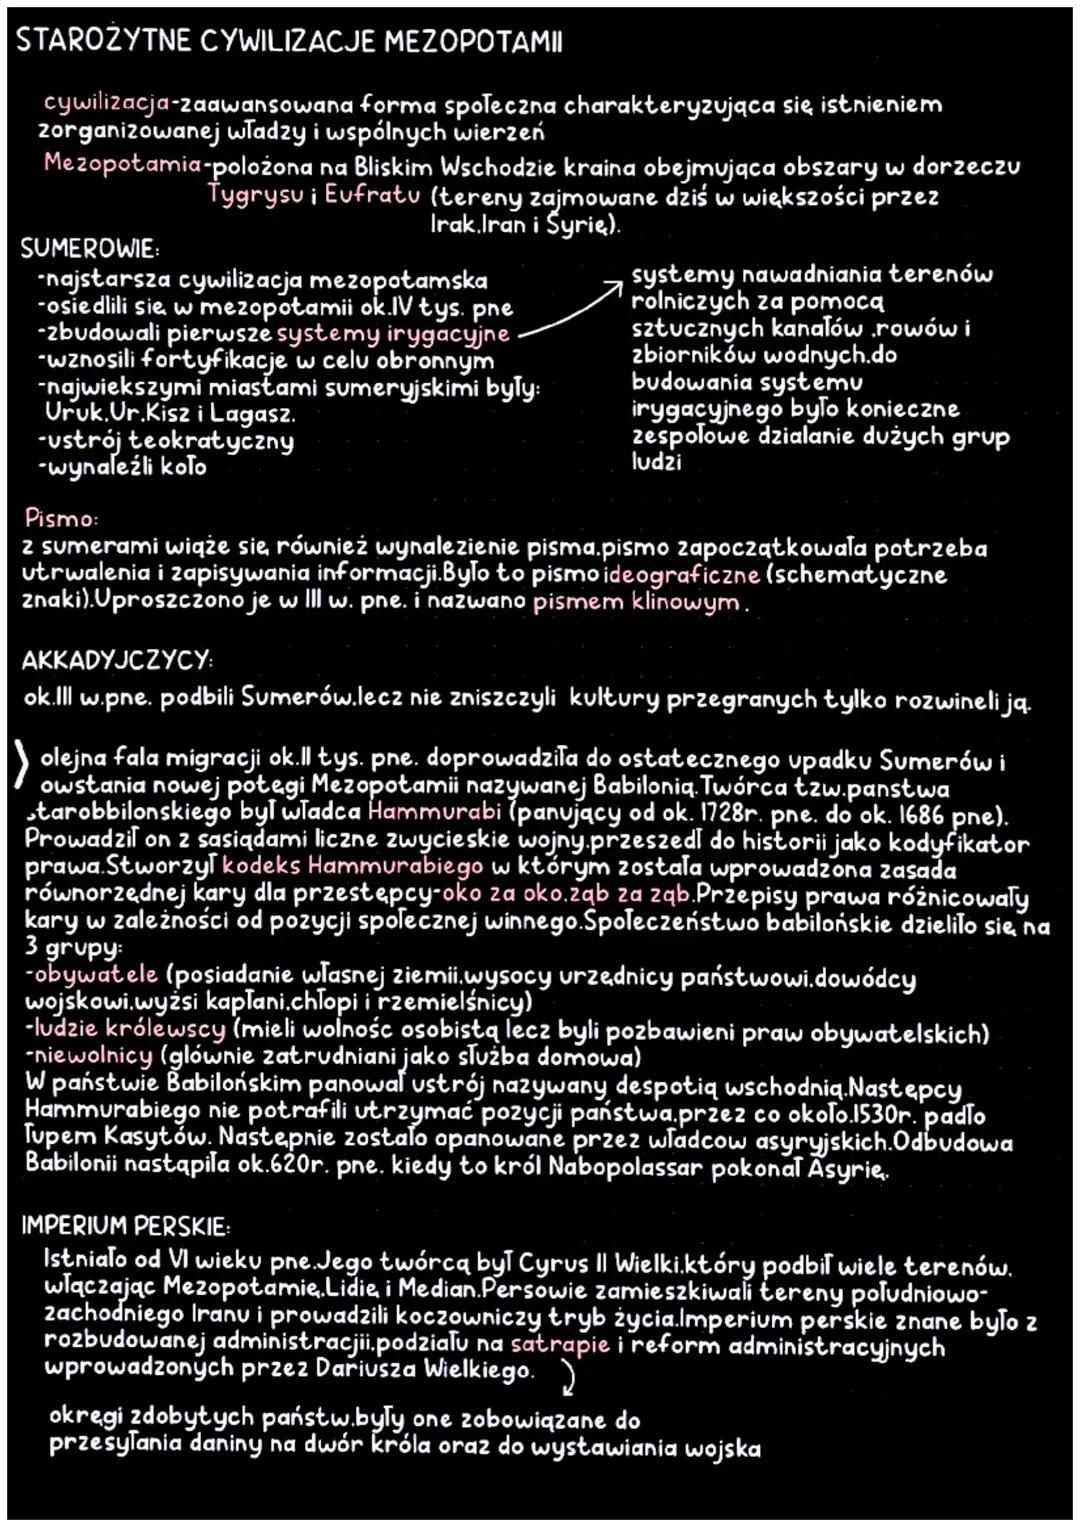 STAROŻYTNE CYWILIZACJE MEZOPOTAMII
cywilizacja-zaawansowana forma społeczna charakteryzująca się istnieniem
zorganizowanej władzy i wspólnych wierzeń
Mezopotamia-polożona na Bliskim Wschodzie kraina obejmująca obszary w dorzeczu
Tygrysu i Eufratu (tereny zajmowane dziś w większości przez
Irak,Iran i Syrię).
SUMEROWIE:
-najstarsza cywilizacja mezopotamska
-osiedlili się w mezopotamii ok.IV tys. pne
-zbudowali pierwsze systemy irygacyjne
-wznosili fortyfikacje w celu obronnym
-najwiekszymi miastami sumeryjskimi były:
Uruk,Ur,Kisz i Lagasz.
-ustrój teokratyczny
-wynaleźli koło
systemy nawadniania terenów
rolniczych za pomocą
sztucznych kanałów ,rowów i
zbiorników wodnych.do
budowania systemu
irygacyjnego było konieczne
zespołowe dzialanie dużych grup
ludzi
Pismo:
z sumerami wiąże się również wynalezienie pisma.pismo zapoczątkowała potrzeba
utrwalenia i zapisywania informacji.Było to pismo ideograficzne (schematyczne
znaki).Uproszczono je w III w. pne. i nazwano pismem klinowym.
AKKADYJCZYCY:
ok.III w.pne. podbili Sumerów,lecz nie zniszczyli kultury przegranych tylko rozwineli ją.
olejna fala migracji ok.II tys. pne. doprowadziła do ostatecznego upadku Sumerów i
owstania nowej potęgi Mezopotamii nazywanej Babilonią.Twórca tzw.panstwa
starobbilonskiego był władca Hammurabi (panujący od ok. 1728r. pne. do ok. 1686 pne).
Prowadził on z sasiądami liczne zwycieskie wojny.przeszedł do historii jako kodyfikator
prawa.Stworzył kodeks Hammurabiego w którym została wprowadzona zasada
równorzędnej kary dla przestępcy-oko za oko,ząb za ząb.Przepisy prawa różnicowały
kary w zależności od pozycji społecznej winnego.Społeczeństwo babilońskie dzieliło się na
3 grupy:
-obywatele (posiadanie własnej ziemii,wysocy urzędnicy państwowi,dowódcy
wojskowi,wyżsi kapłani,chłopi i rzemielśnicy)
-ludzie królewscy (mieli wolnośc osobistą lecz byli pozbawieni praw obywatelskich)
-niewolnicy (glównie zatrudniani jako służba domowa)
W państwie Babilońskim panował ustrój nazywany despotią wschodnią.Następcy
Hammurabiego nie potrafili utrzymać pozycji państwa,przez co około.1530r. padło
łupem Kasytów. Następnie zostało opanowane przez władcow asyryjskich.Odbudowa
Babilonii nastąpiła ok.620r. pne. kiedy to król Nabopolassar pokonał Asyrię.
IMPERIUM PERSKIE:
Istniało od VI wieku pne.Jego twórcą był Cyrus II Wielki,który podbił wiele terenów,
włączając Mezopotamię,Lidię i Median.Persowie zamieszkiwali tereny południowo-
zachodniego Iranu i prowadzili koczowniczy tryb życia.Imperium perskie znane było z
rozbudowanej administracjii,podziału na satrapie i reform administracyjnych
wprowadzonych przez Dariusza Wielkiego.
okręgi zdobytych państw,były one zobowiązane do
przesyłania daniny na dwór króla oraz do wystawiania wojska